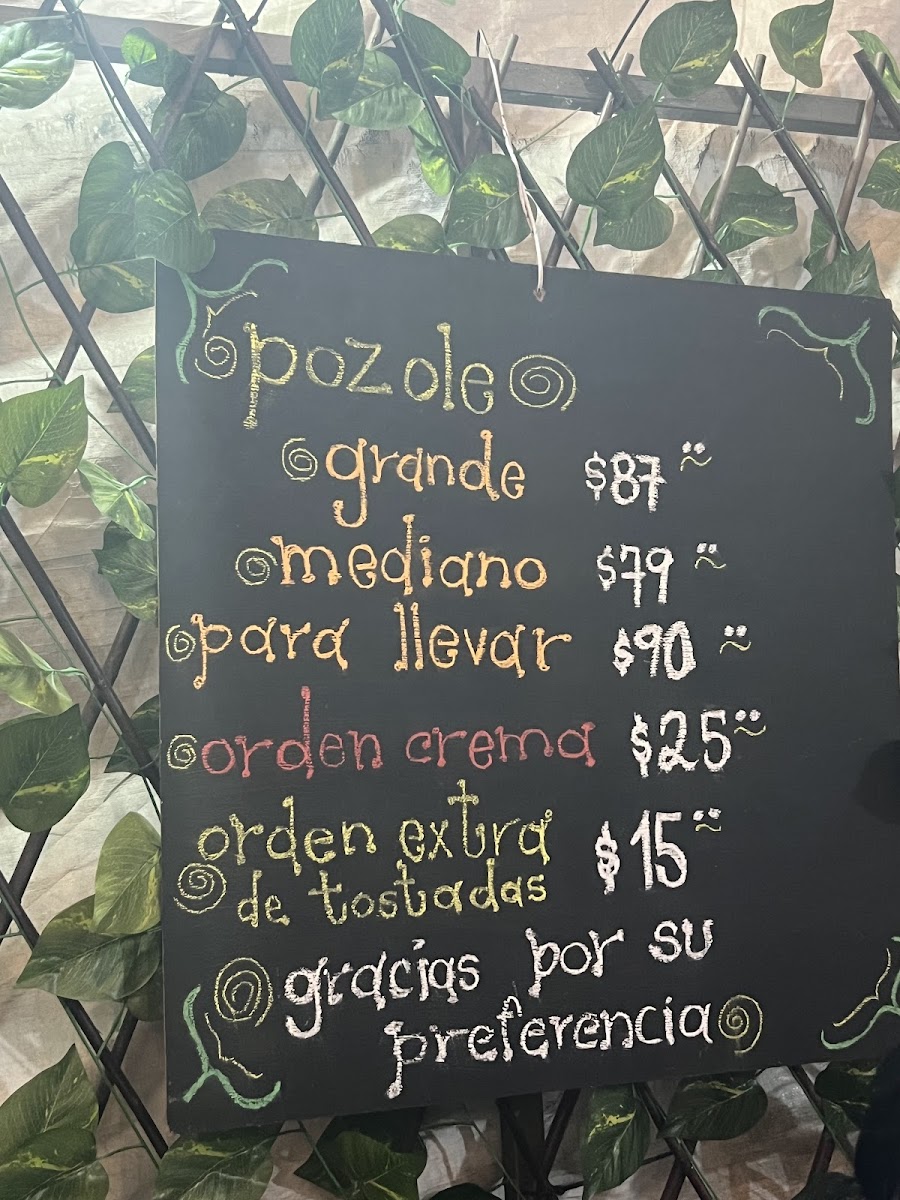 pozole
grande $87
mediano $79
para llevar $90
orden crema $25
orden extra $15
de tostadas
gracias por su
preferencia